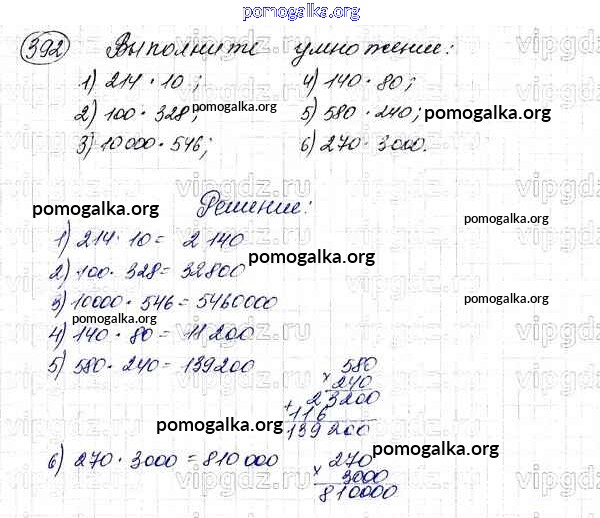 pomogalka.org
392 Выполните умножение:
1) 214 · 10; 4) 140 · 80;
2) 100 · 328; 5) 580 · 240;
3) 10000 · 546; 6) 270 · 3000.
Решение:
1) 214 · 10 = 2140
2) 100 · 328 = 32800
3) 10000 · 546 = 5460000
4) 140 · 80 = 11200
5) 580 · 240 = 139200
580
× 240
23200
+ 116
139200
6) 270 · 3000 = 810000
270
× 3000
810000
pomogalka.org
pomogalka.org
pomogalka.org
pomogalka.org
pomogalka.org
pomogalka.org
pomogalka.org
pomogalka.org
pomogalka.org
vipgdz.ru